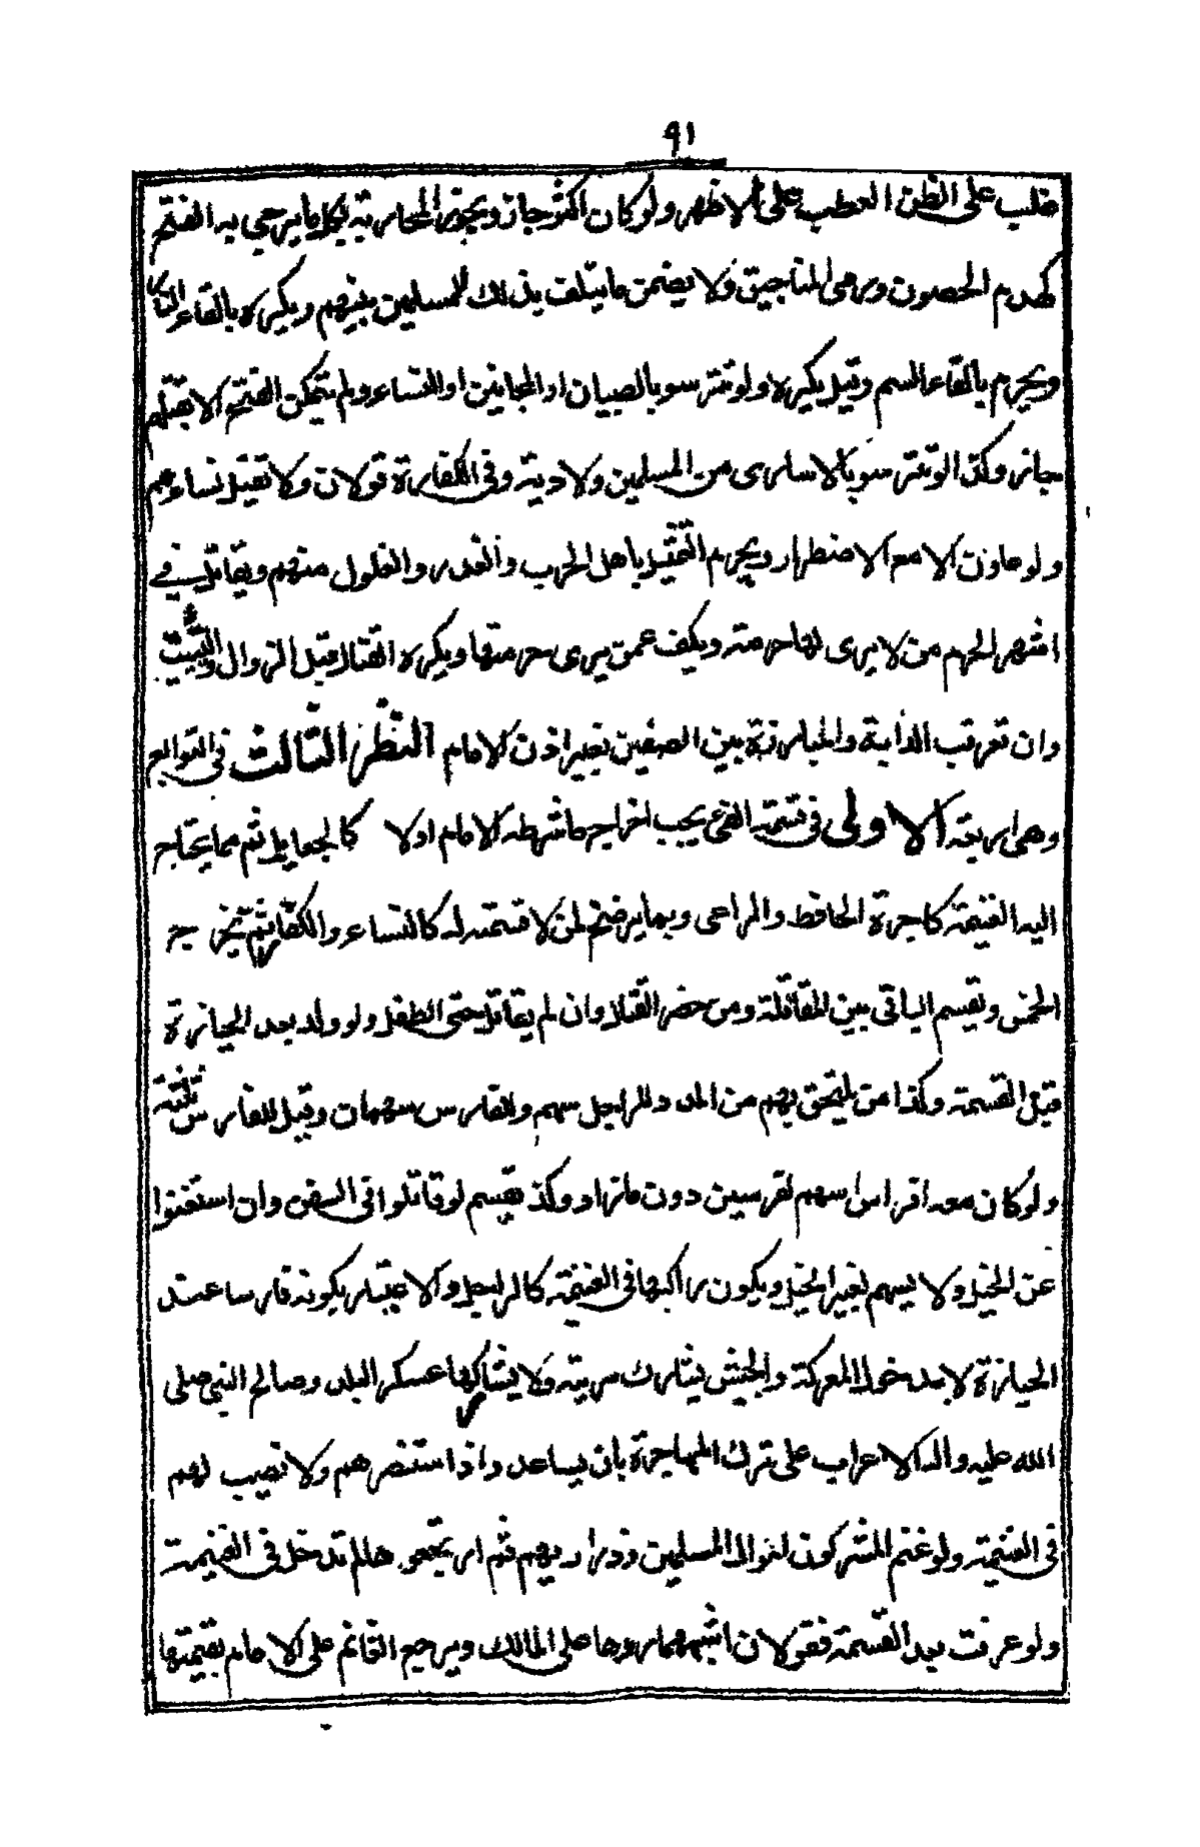 ٩١
غلب على الظن العطب على الاظهر ولو كان اكثر جاز ويجوز المحاربة بكل ما يرجى به الفتح
كهدم الحصون ورمى المناجيق ولا يضمن ما يتلف بذلك للمسلمين بينهم ويكره بالقاء النار
ويحرم بالقاء السم وقيل يكره ولو تترسو بالصبيان او المجانين او النساء ولم يمكن الفتح الا بقتلهم
جاز وكذا لو تترسو بالاسارى من المسلمين ولا دية وفى الكفارة قولان ولا تقتل نساءهم
ولو عاون الا مع الاضطرار ويحرم التمثيل باهل الحرب والغدر والغلول منهم ويقاتل فى
اشهر الحرم من لا يرى لها حرمته ويكف عمن يرى حرمتها ويكره القتال قبل الزوال والتبييت
وان تعرقب الدابة والمبارزة بين الصفين بغير اذن الامام النظر الثالث فى التوابع
وهى اربعة الاولى فى قسمة الفىء يجب اخراج ما شرطه الامام اولا كالجعايل ثم مما يحتاج
اليه الغنيمة كاجرة الحافظ والراعى وبما يرضخ لمن لا قسمته له كالنساء والكفار ثم يخرج
الخمس ويقسم الباقى بين المقاتلة ومن حضر القتال وان لم يقاتل حتى الطفل ولو ولد بعد الحيازة
قبل القسمة وكذا من يلتحق بهم من المدد للراجل سهم وللفارس سهمان وقيل للفارس ثلثة
ولو كان معه افراس اسهم لفرسين دون ما زاد وكذ يقسم لو قاتلوا فى السفن وان استغنوا
عن الخيل ولا يسهم لغير الخيل ويكون راكبها فى الغنيمة كالراجل والاعتبار بكونه فارسا عند
الحيازة لا بدخول المعركة والجيش يشارك سريته ولا يشاركها عسكر البلد وصالح النبى صلى
الله عليه واله الاعراب على ترك المهاجرة بان يساعدوا اذا استنفرهم ولا نصيب لهم
فى الغنيمة ولو غنم المشركون اموال المسلمين وذراريهم ثم ارتجعوها لم تدخل فى الغنيمة
ولو عرفت بعد القسمة فقولان اشبههما ردها على المالك ويرجع الغانم على الامام بقيمتها